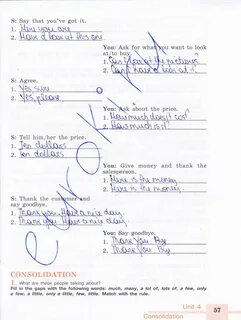 S: Say that you've got it.
1. Here you are
2. Have a look at this one.
You: Ask for what you want to look at/to buy.
1. Can I look at the pictures
2. Can I have a look at it?
S: Agree.
1. Yes, sure
2. Yes, please
You: Ask about the price.
1. How much does it cost
2. How much is it?
S: Tell him/her the price.
1. Ten dollars
2. Ten dollars
You: Give money and thank the salesperson.
1. Here is the money
2. Here is the money.
S: Thank the customer and say goodbye.
1. Thank you. Have a nice day.
2. Thank you. Have a nice day.
You: Say goodbye.
1. Thank you. Bye
2. Thank you. Bye
CONSOLIDATION
1. What are these people talking about?
Fill in the gaps with the following words: much, many, a lot of, lots of, a few, only
a few, a little, only a little, few, little. Match with the rule.
Unit 4
57
Consolidation